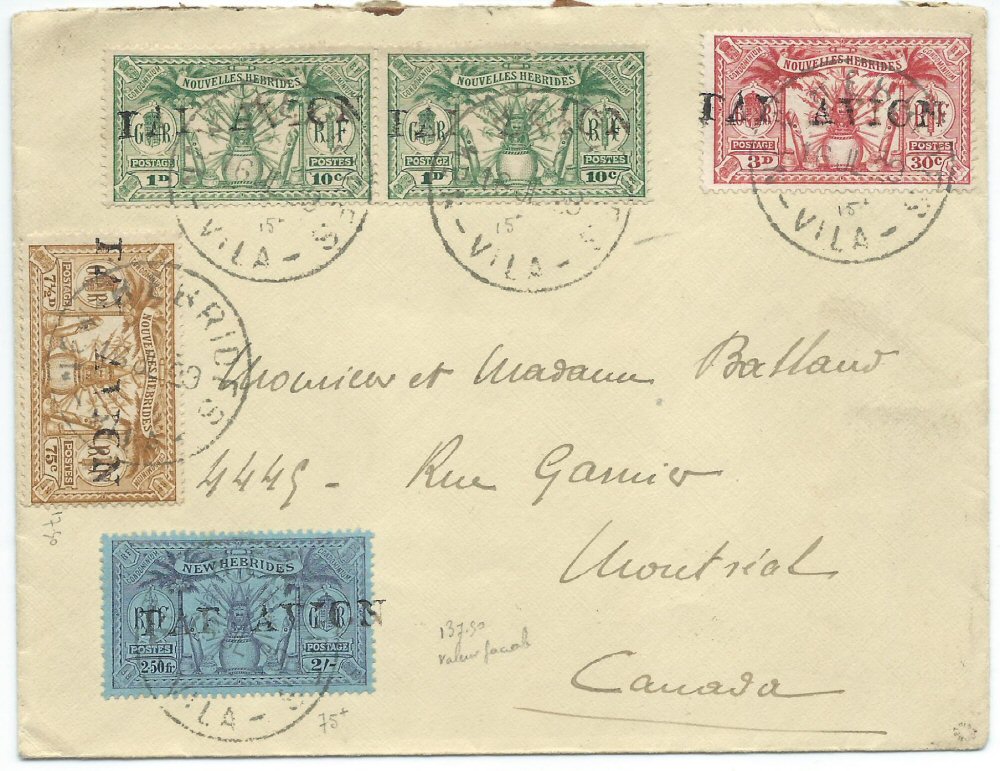 NOUVELLES HEBRIDES
PAR AVION
G R R F
POSTAGE POSTES
1D 10c
NOUVELLES HEBRIDES
PAR AVION
G R R F
POSTAGE POSTES
1D 10c
NOUVELLES HEBRIDES
PAR AVION
G R R F
POSTAGE POSTES
3D 30c
15+
VILA
15+
VILA
15+
VILA
NOUVELLES HEBRIDES
PAR AVION
POSTAGE POSTES
7½D 75c
HEBRIDES
Monsieur et Madame Balland
4445 - Rue Garnier
Montréal
Canada
NEW HEBRIDES
PAR AVION
R F G R
POSTES POSTAGE
2·50fr. 2/-
VILA
75+
137.50
valeur faciale